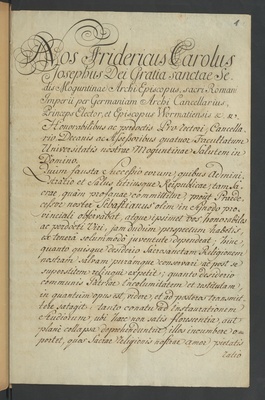 4
Nos Fridericus Carolus
Josephus Dei Gratia sanctae Se-
dis Moguntinae Archi Episcopus, sacri Romani
Imperii per Germaniam Archi Cancellarius,
Princeps Elector, et Episcopus Wormatiensis &c. &c.
Honorabilibus ac perdoctis Pro-Rectori, Cancella-
rio Decanis ac Assessoribus quatuor Facultatum
Universitatis nostrae Moguntinae Salutem in
Domino.
Quum fausta Successio eorum, quibus Admini-
stratio et Salus utriusque Reipublicae, tam Sa-
crae, quam profanae committitur,
nostra
vos honorabiles
ac perdocti Viri, jam dudum perspectum habetis,
ex tenera juventute dependeat; hinc
quanto quisque desiderio Sacrosanctam Religionem
nostram salvam puramque conservari, ac post se
superstitem relinqui expetit; quanto desiderio
communis Patriae incolumitatem et
in quantum opus est, videre, et ad posteros transmit-
tere satagit; tanto conatu ad Instaurationem
Studiorum, ubi haec non satis florescentia, aut
plane collapsa deprehenduntur, illos incumbere o-
portet, quos Sacrae Religionis nostrae amor, pietatis